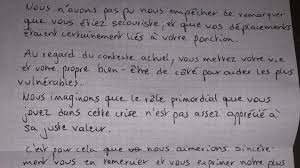 Nous n'avons pas pu nous empêcher de remarquer
que vous étiez secouriste, et que vos déplacements
étaient certainement liés à votre fonction.
Au regard du contexte actuel, vous mettez votre vie
et votre propre bien-être de côté pour aider les plus
vulnérables.
Nous imaginons que le rôle primordial que vous
jouez dans cette crise n'est pas assez apprécié à
sa juste valeur.
C'est pour cela que nous aimerions sincère-
ment vous en remercier et vous exprimer notre plus